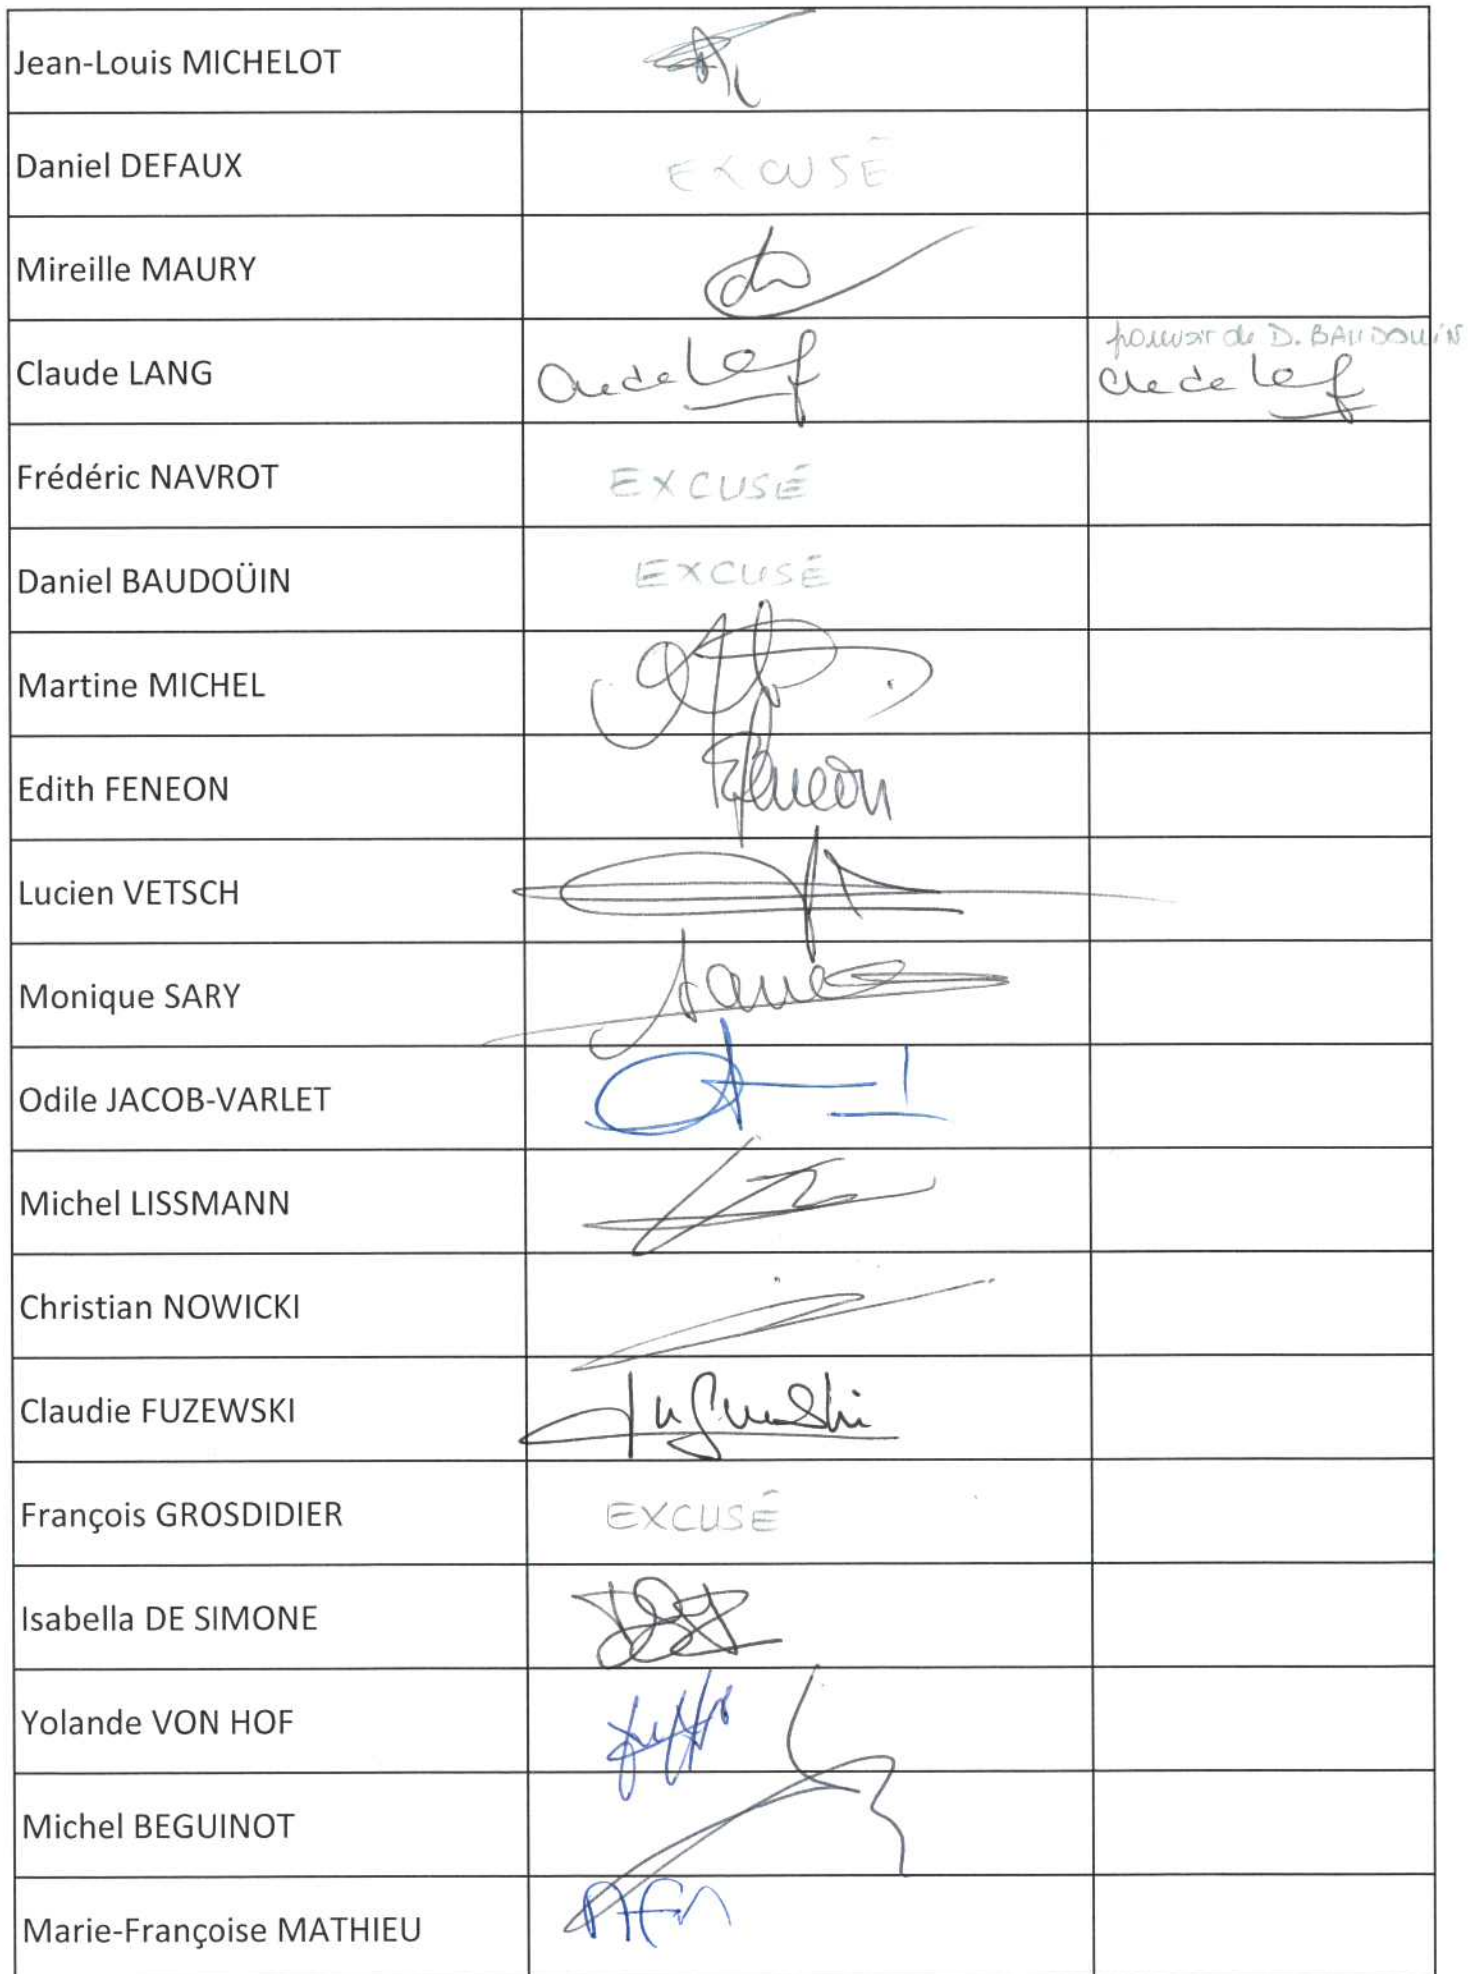 Jean-Louis MICHELOT
Daniel DEFAUX EXCUSÉ
Mireille MAURY
pouvoir de D. BAUDOUIN
Claude LANG
Frédéric NAVROT EXCUSÉ
Daniel BAUDOÜIN EXCUSÉ
Martine MICHEL
Edith FENEON EFeneon
Lucien VETSCH
Monique SARY
Odile JACOB-VARLET
Michel LISSMANN
Christian NOWICKI
Claudie FUZEWSKI
François GROSDIDIER EXCUSÉ
Isabella DE SIMONE
Yolande VON HOF
Michel BEGUINOT
Marie-Françoise MATHIEU